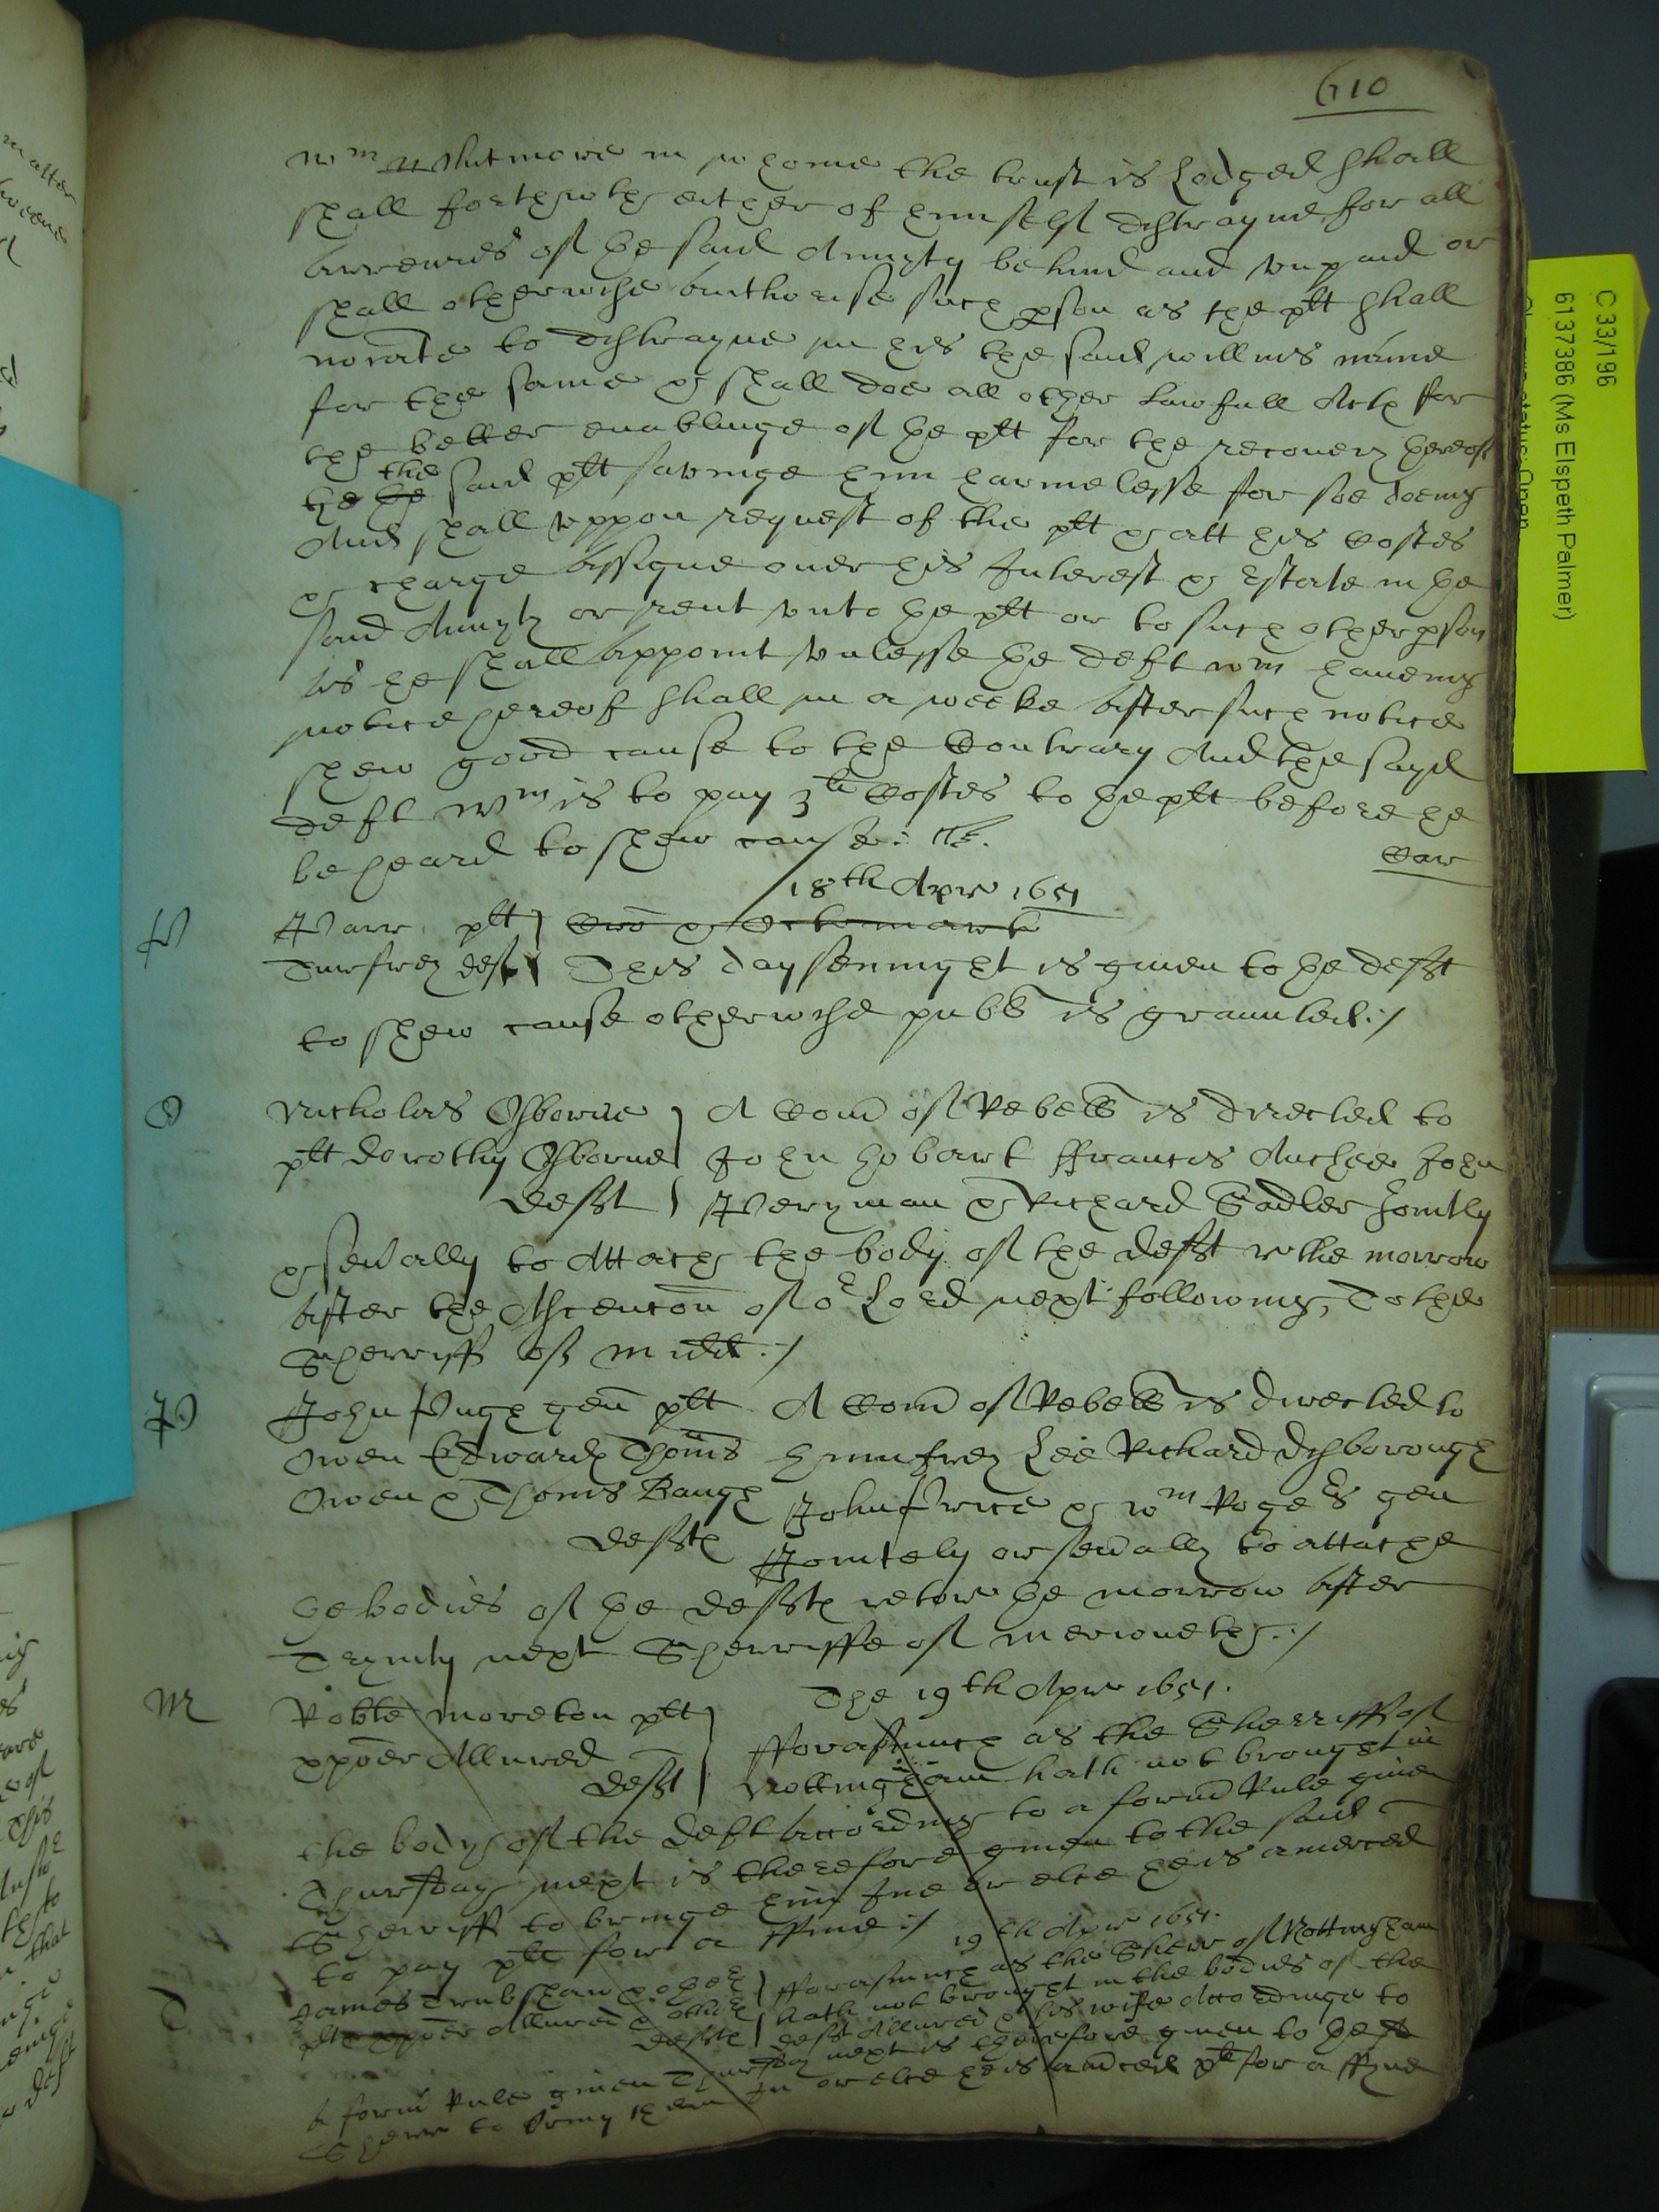 610
Wm Whitmore in whome the trust is Lodged shall
shall forthwith either of himselfe distrayne for all
arreares of the said Annuity behind and unpaid or
shall otherwise authorise such pson as the plt shall
noiate to distrayne in his the said Willms name
for the same & shall doe all other lawfull Acts for
the better enablinge of the plt for the recovery thereof
the said plt savinge him harmelesse for soe doeing
And shall uppon request of the plt & att his Costes
& charge assigne over his Interest & Estate in the
said Annuity or rent unto the plt or to such other pson
as he shall appoint unlesse the deft Wm haveing
notice hereof shall in a weeke after such notice
shew good cause to the Contrary And the sayd
deft Wm is to pay 3li Costes to the plt before he
be heard to shew cause
18th Apr 1651
Parr plt
Turfrey deft This day sennight is given to the defft
to shew cause otherwise publ is graunted
O Nicholas Osborne A Com of Rebell is directed to
plt Dorothy Osborne John Hobart ffrancis Archer John
defft Perryman & Richard Sadler Jointly
& sevally to Attach the body of the defft r the morrow
after the Ascencon of or Lord next following, To the
Sherriff of Midd
P John Pugh gen plt A Com of Rebell is directed to
Owen Edwards Thoms Humfrey Lee Richard Disborough
Owen & Thoms Baugh John Price & Wm Roges gen
deffts Jointely or sevally to attache
the bodies of the deffts retor the morrow after
Trinity next Sherriffe of Merioneth
The 19th Apr 1651.
M Robte Moreton plt fforasmuch as the Sherriff of
xpofer Allured defft Nottingham hath not brought in
the body of the deft according to a form Rule given
Thursday next is therefore given to the said
Sherriff to bringe him Ine or else he is amerced
to pay for a ffine
19th Apr 1651.
T James Trubshaw fforasmuch as the Sherr of Nottingham
plts xpofer Allured & others hath not brought in the bodies of the
deffts defft Allured & his wife Accordinge to
a form Rule given Thursday next is therefore given to the
Sherr to bring them In or else he is amced for a ffyne
C 33/196
6137386 (Ms Elspeth Palmer)